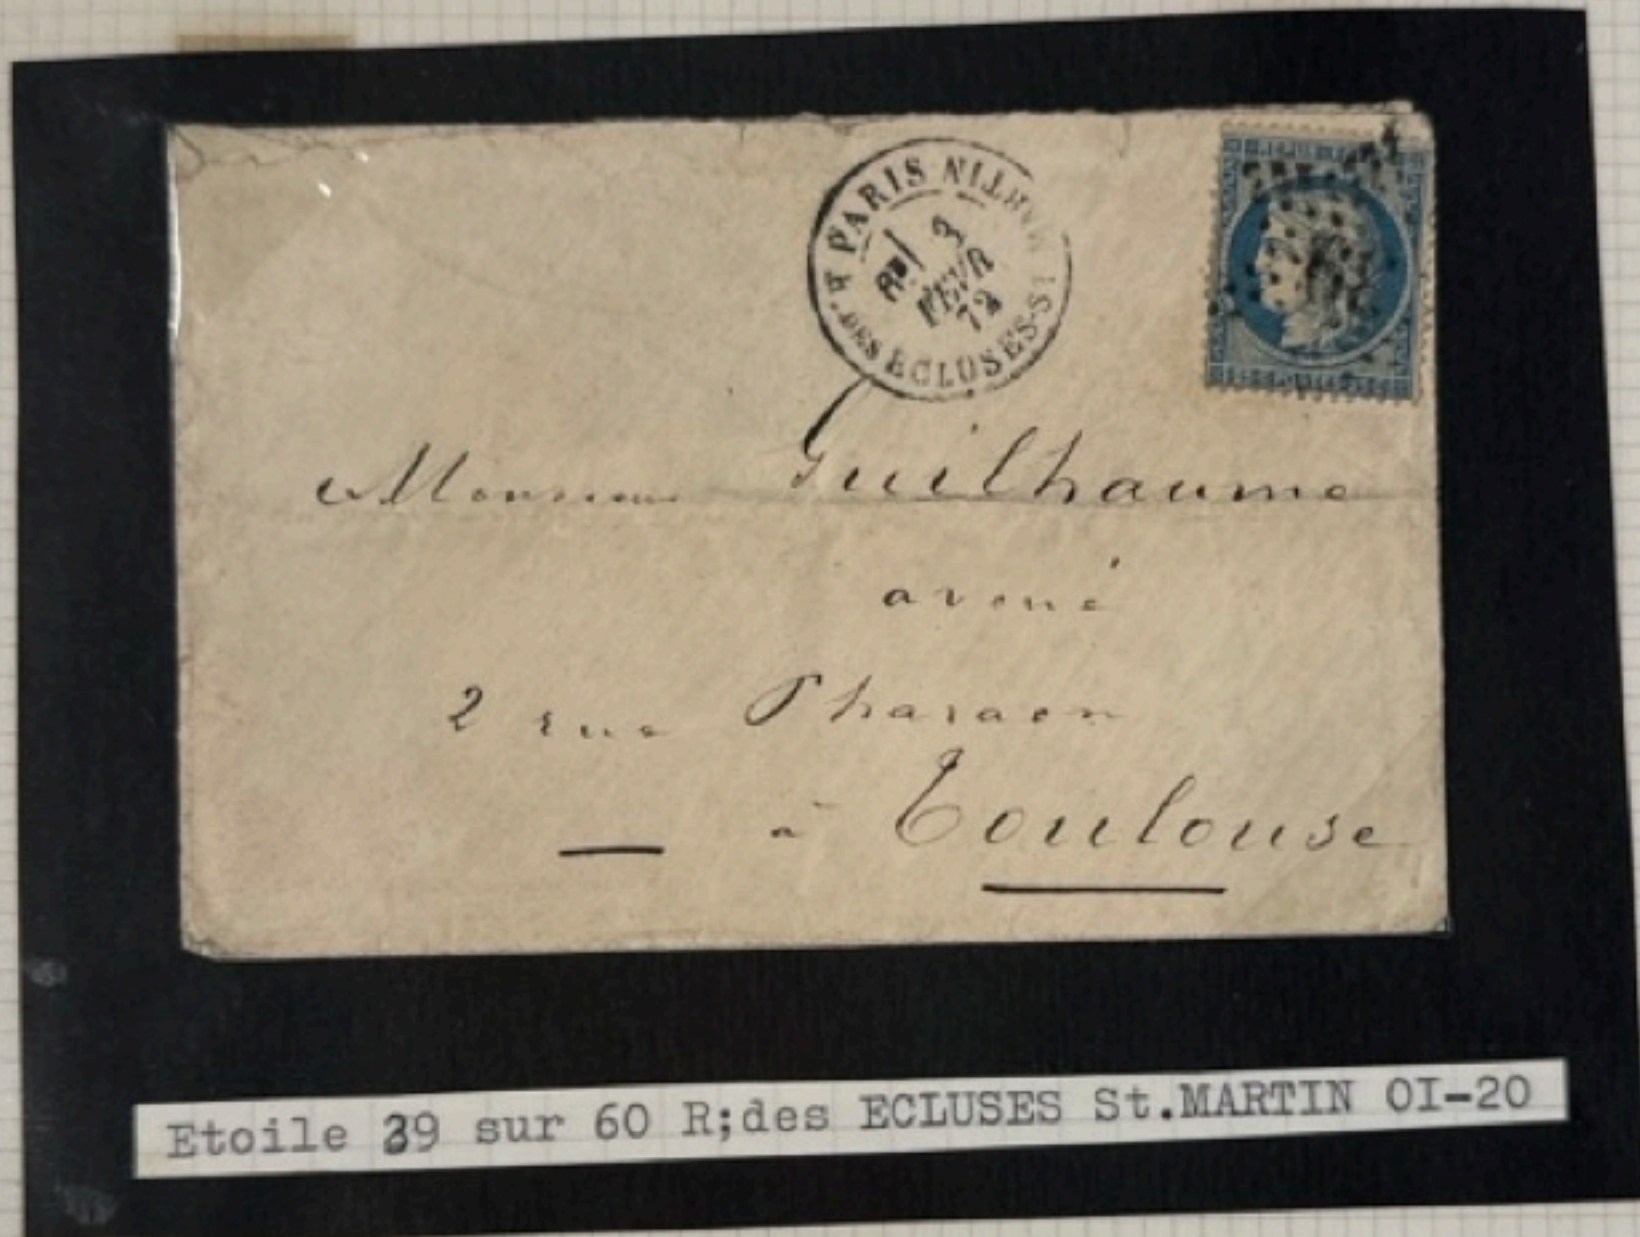 PARIS
R. DES ECLUSES-ST MARTIN
3
FEVR
72
Monsieur Guilhaume
avoué
2 rue Pharaon
à Toulouse
Etoile 39 sur 60 R;des ECLUSES St.MARTIN OI-20